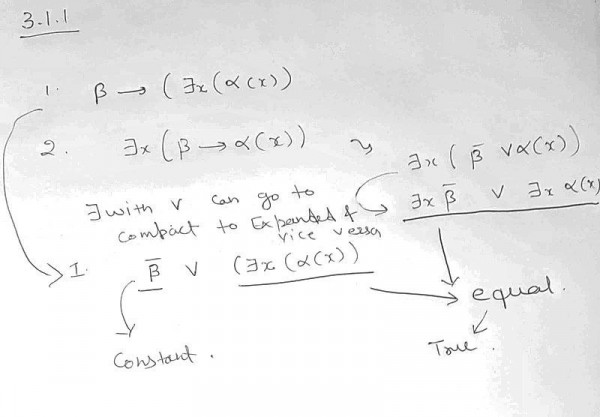 3.1.1
1. β → (∃x(α(x))
2. ∃x(β → α(x)) ⤳ ∃x(β̅ ∨ α(x))
∃x β̅ ∨ ∃x α(x)
∃ with ∨ can go to
compact to Expanded &
vice versa
I. β̅ ∨ (∃x(α(x))
equal.
Constant.
True.